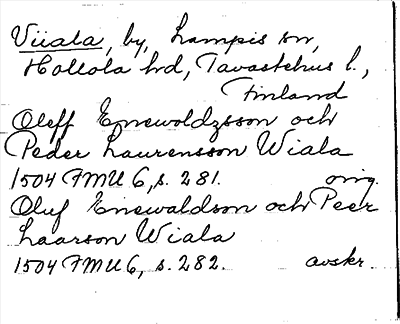 Viiala, by, Lampis sn,
Hollola hd, Tavastehus l.,
Finland
Oleff Enewoldzsson och
Peder Laurensson Wiala
1504 FMU 6, s. 281. orig.
Oluf Enewaldson och Peer
Laarson Wiala
1504 FMU 6, s. 282. avskr.